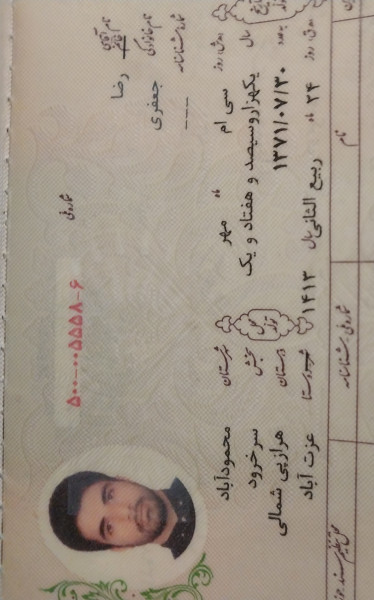 نام آقای خانم رضا
نام خانوادگی جعفری
شماره شناسنامه ---
شماره ملی
۵۰۰-۰۰۵۵۵۸-۶
تاریخ تولد
روز سی ام ماه مهر
سال یکهزار و سیصد و هفتاد و یک
۱۳۷۱/۰۷/۳۰
روز ۲۴ ماه ربیع الثانی سال ۱۴۱۳
محل تولد
شهرستان محمودآباد
بخش سرخرود
دهستان هرازپی شمالی
عزت آباد
نام
شماره ملی / شناسنامه